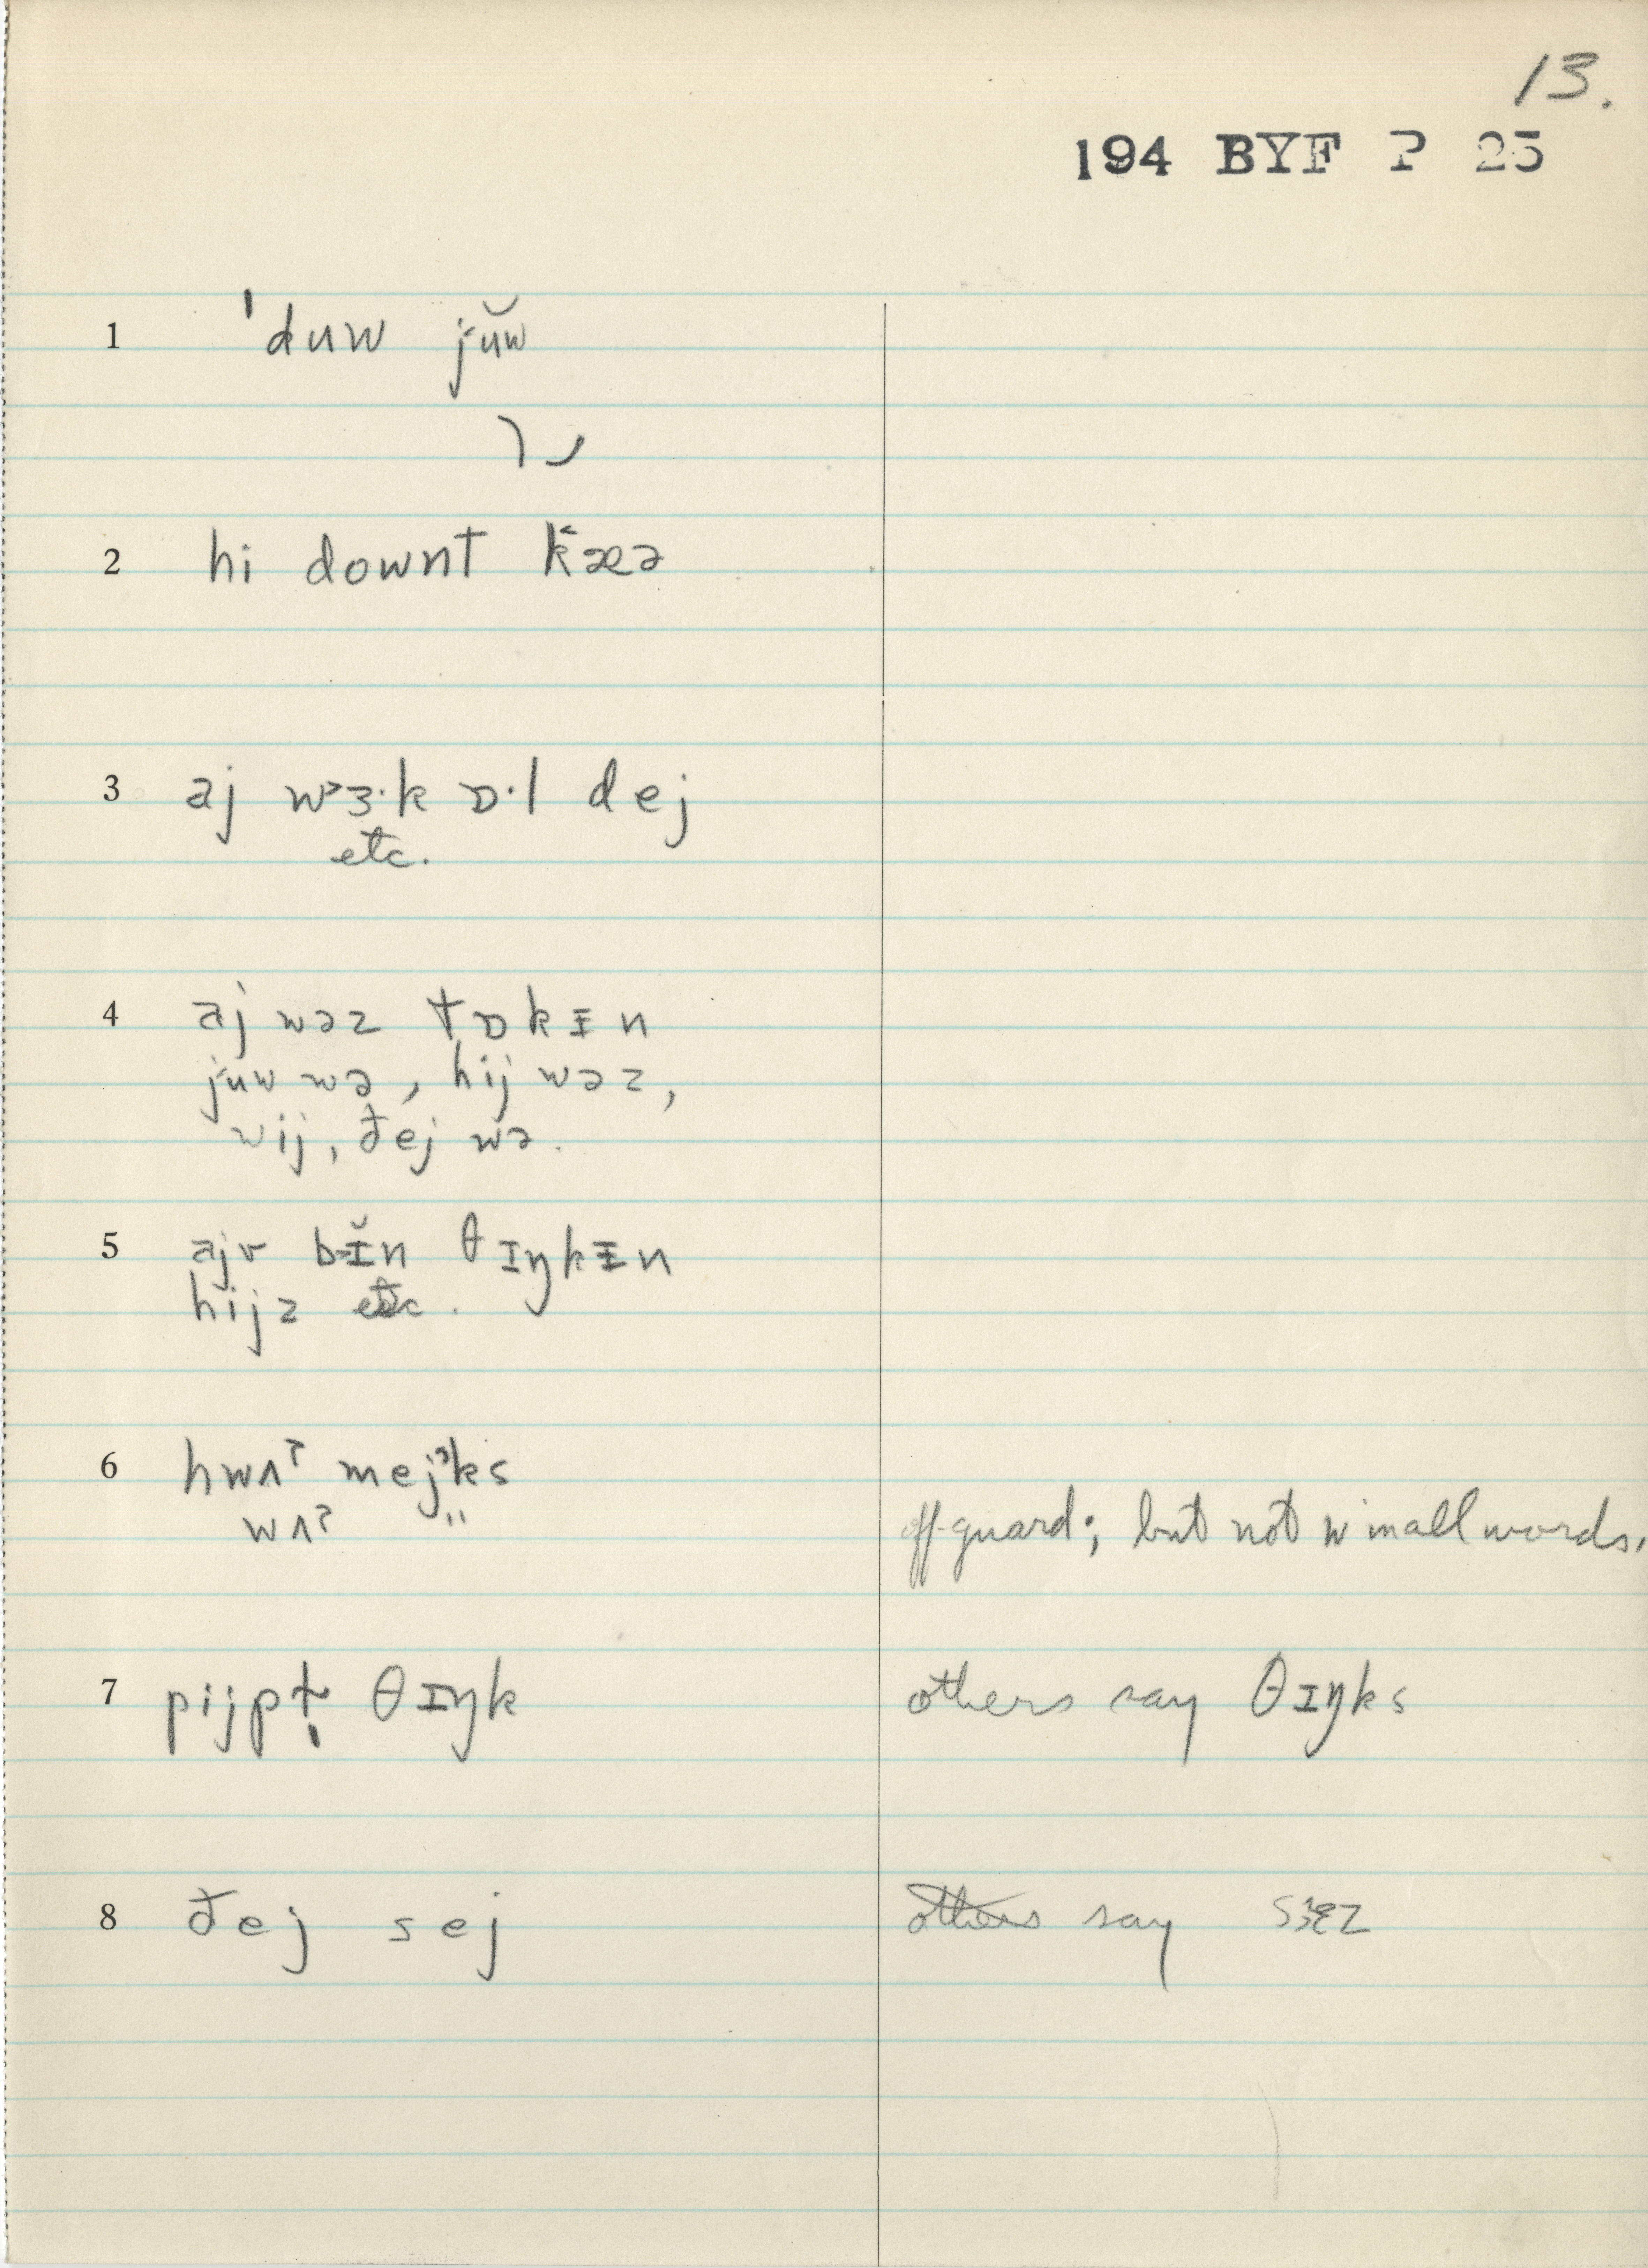 13.
194 BYF P 25
1 ˈduw jŭw
2 hi downt k˂æə
3 aj w˃ɜ·k ɒ·l dej
etc.
4 aj wəz tɒkᵻn
juw wə, hij wəz,
wij, đej wə.
5 ajv bɪ̆n θɪŋkᵻn
hijz etc.
6 hwʌˀ mejˀks
wʌˀ "
off-guard; but not in all words.
7 pijpɫ̩ θɪŋk others say θɪŋks
8 đej sej others say